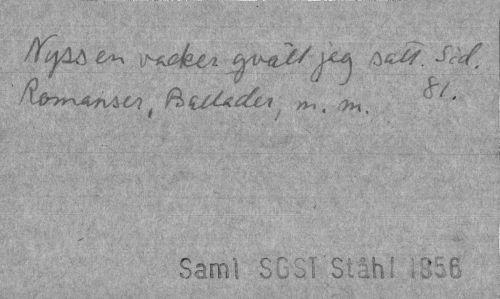 Nyss en vacker qväll jag satt. Sid.
Romanser, Ballader, m. m. 81.
Saml SGST Ståhl 1856